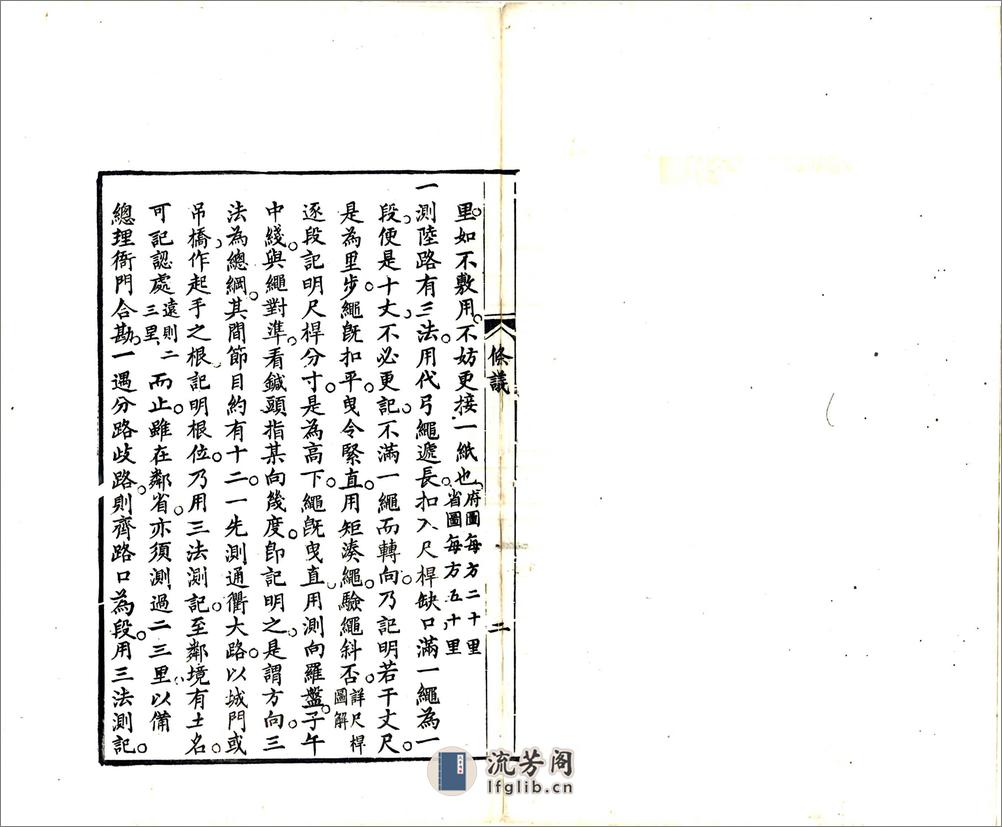 里。如不敷用。不妨更接一紙也。府圖每方二十里省圖每方五十里
一測陸路有三法。用代弓繩遞長扣入尺桿缺口滿一繩為一
段。便是十丈。不必更記。不滿一繩而轉向。乃記明若干丈尺。
是為里步。繩既扣平。曳令緊直。用矩湊繩。驗繩斜否。詳尺桿圖解
逐段記明尺桿分寸。是為高下。繩既曳直。用測向羅盤。子午
中綫。與繩對準。看鍼頭指某向幾度。即記明之。是謂方向。三
法為總綱。其間節目約有十二。一先測通衢大路。以城門或
吊橋作起手之根。記明根位。乃用三法測記。至鄰境有土名
可記認處遠則二三里、而止。雖在鄰省。亦須測過二三里以備
總理衙門合勘。一遇分路歧路。則齊路口為段。用三法測記。
條議
二
流芳阁
lfglib.cn